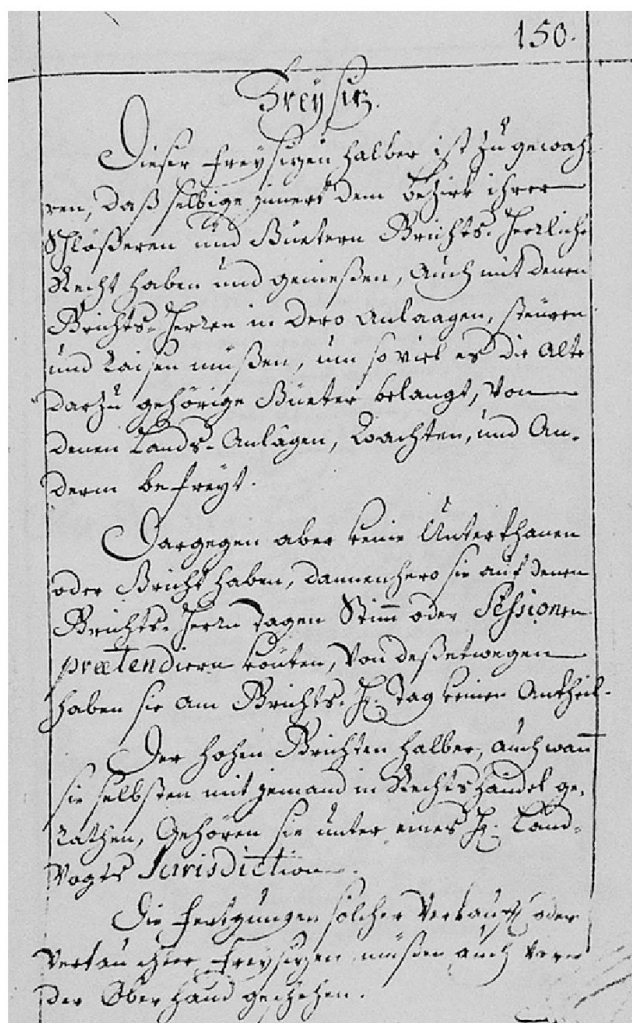 150.
Freysitz.
Dieser Freysitzen halber ist zu gewah-
ren, daß selbige innert dem Bezirk ihrer
Schlößeren und Güetern Grichts-Herrliche
Recht haben und genießen, Auch mit denen
Grichts-Herren in dero Anlaagen, steüren
und Raisen müßen, um so viel es die Alte
darzu gehörige Güeter belangt, von
denen Lands-Anlagen, Wachten, und An-
derm befreyt.
Dargegen aber keine Unterthanen
oder Gricht haben, dannenhero sie auf denen
Grichts-Herrn Tagen Stim̅ oder Sessionen
prætendiern könten, von deßetwegen
haben sie am Grichts-H. Tag keinen Antheil.
Der hohen Grichten halber, auch wan̅
sie selbsten mit jemand in Rechtshändel ge-
rathen, Gehören sie unter eines H. Land-
vogts Jurisdiction.
Die fertigungen solcher verkauff oder
vertauschter Freysitzen müßen auch vor
der Oberhand geschehen.